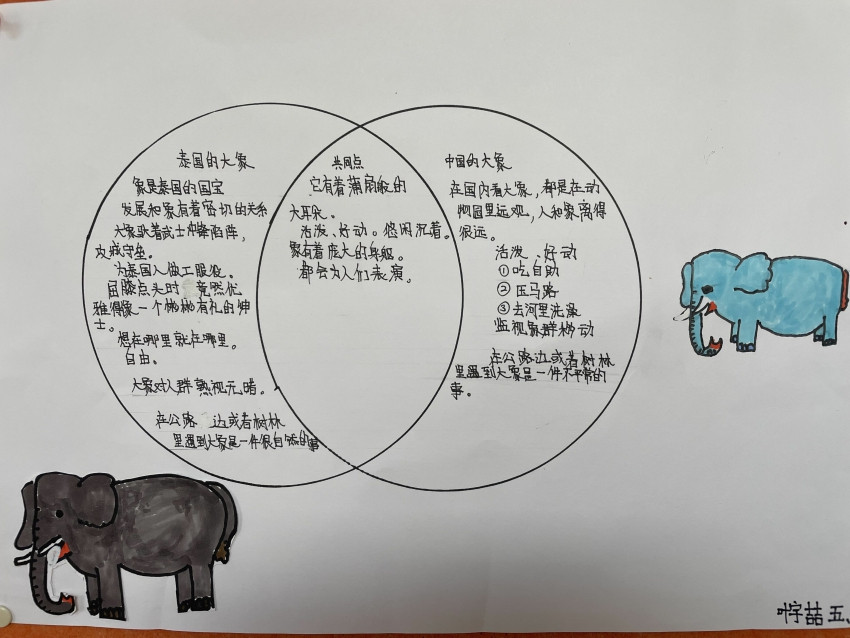 泰国的大象
象是泰国的国宝
发展和象有着密切的关系
大象驮着武士冲锋陷阵，
攻城守垒。
为泰国人做工服役。
屈膝点头时竟然优
雅得像一个彬彬有礼的绅
士。
想在哪里就在哪里。
自由。
大象对人群熟视无睹。
在公路边或者树林
里遇到大象是一件很自然的事
共同点
它有着蒲扇般的
大耳朵。
活泼、好动。悠闲沉着。
象有着庞大的身躯。
都会为人们表演。
中国的大象
在国内看大象，都是在动
物园里远观，人和象离得
很远。
活泼、好动
①吃自助
②压马路
③去河里洗澡
监视象群移动
在公路边或者树林
里遇到大象是一件不平常的
事。
叶宇喆 五、